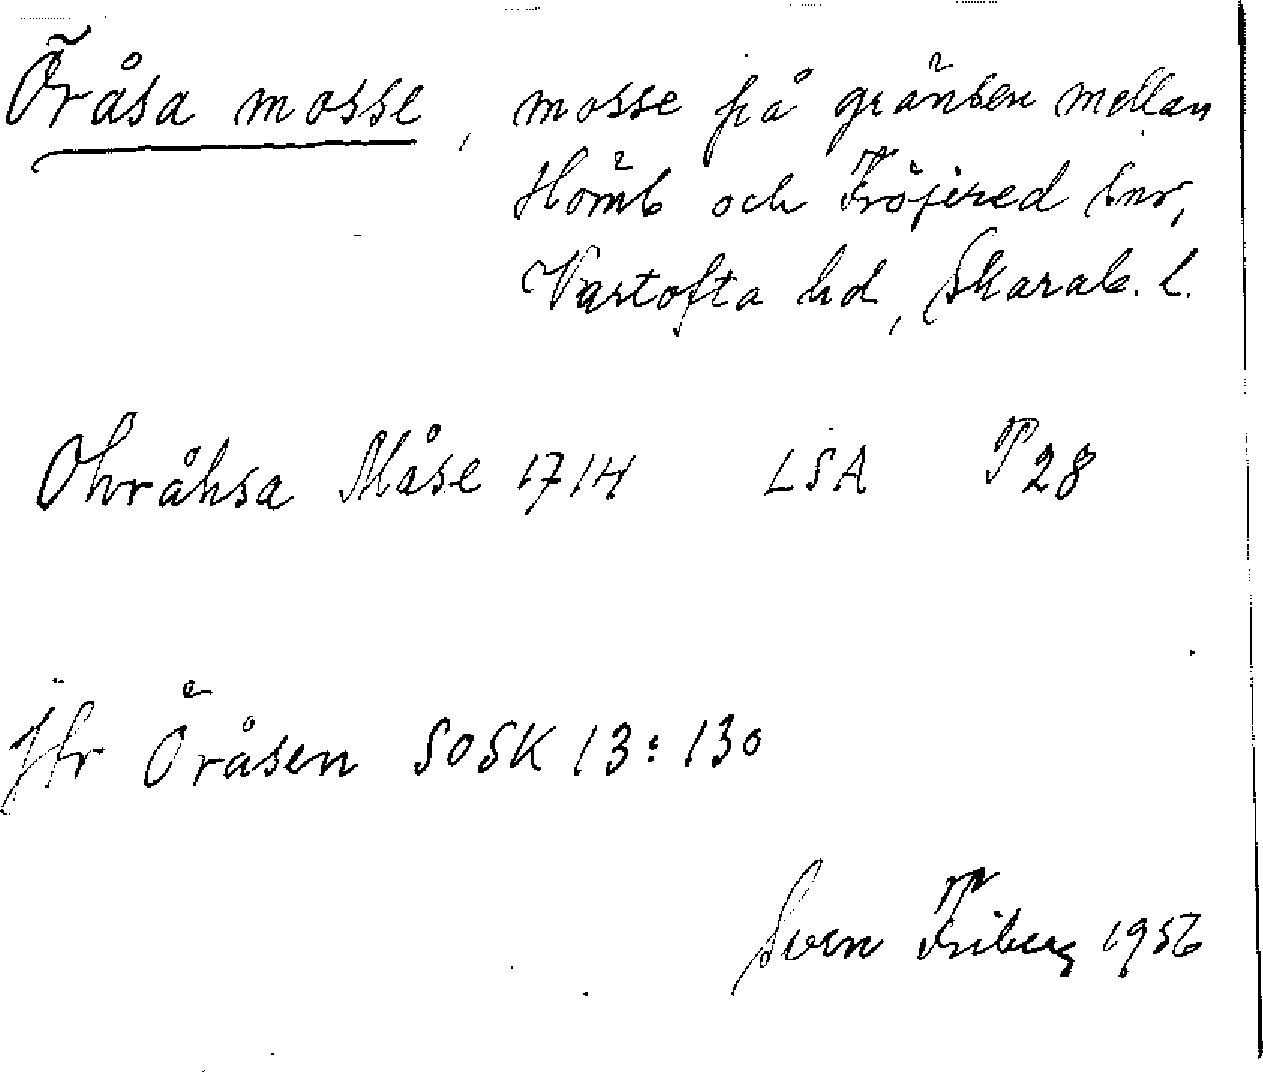 Öråsa mosse, mosse på gränsen mellan
Hömb och Fröjered snr,
Vartofta hd, Skarab. l.
Ohråhsa Måse 1714 LSA P28
Jfr Öråsen SOSK 13:130
Sven Friberg 1956